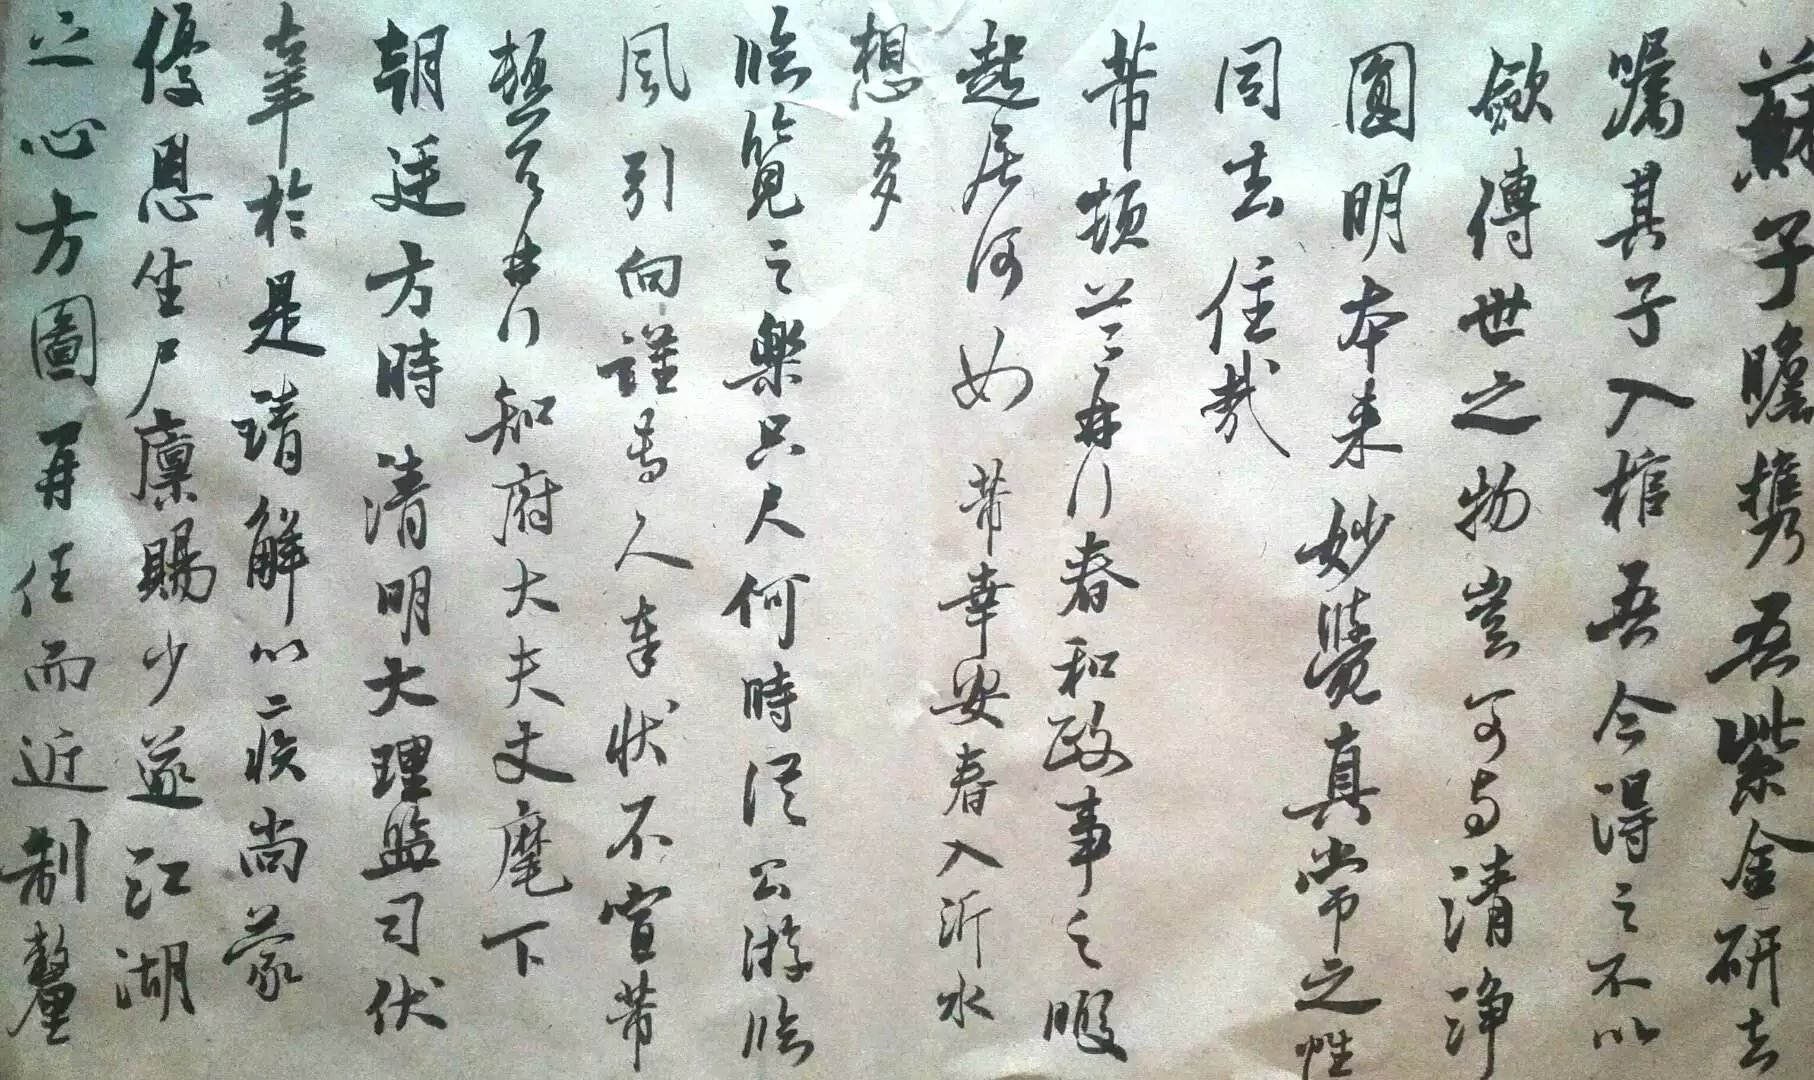 蘇子瞻携吾紫金研去
嘱其子入棺吾今得之不以
斂傳世之物豈可与清净
圓明本来妙覺真常之性
同去住哉
芾頓首再拜春和政事之暇
起居何如芾幸安春入沂水
想多
臨覧之樂咫尺何時從公游臨
風引向謹専人奉状不宣芾
頓首再拜知府大夫丈麾下
朝廷方時清明大理監司伏
幸於是請解以疾尚蒙
優恩坐尸廪賜少遂江湖
之心方圖再任而近制釐